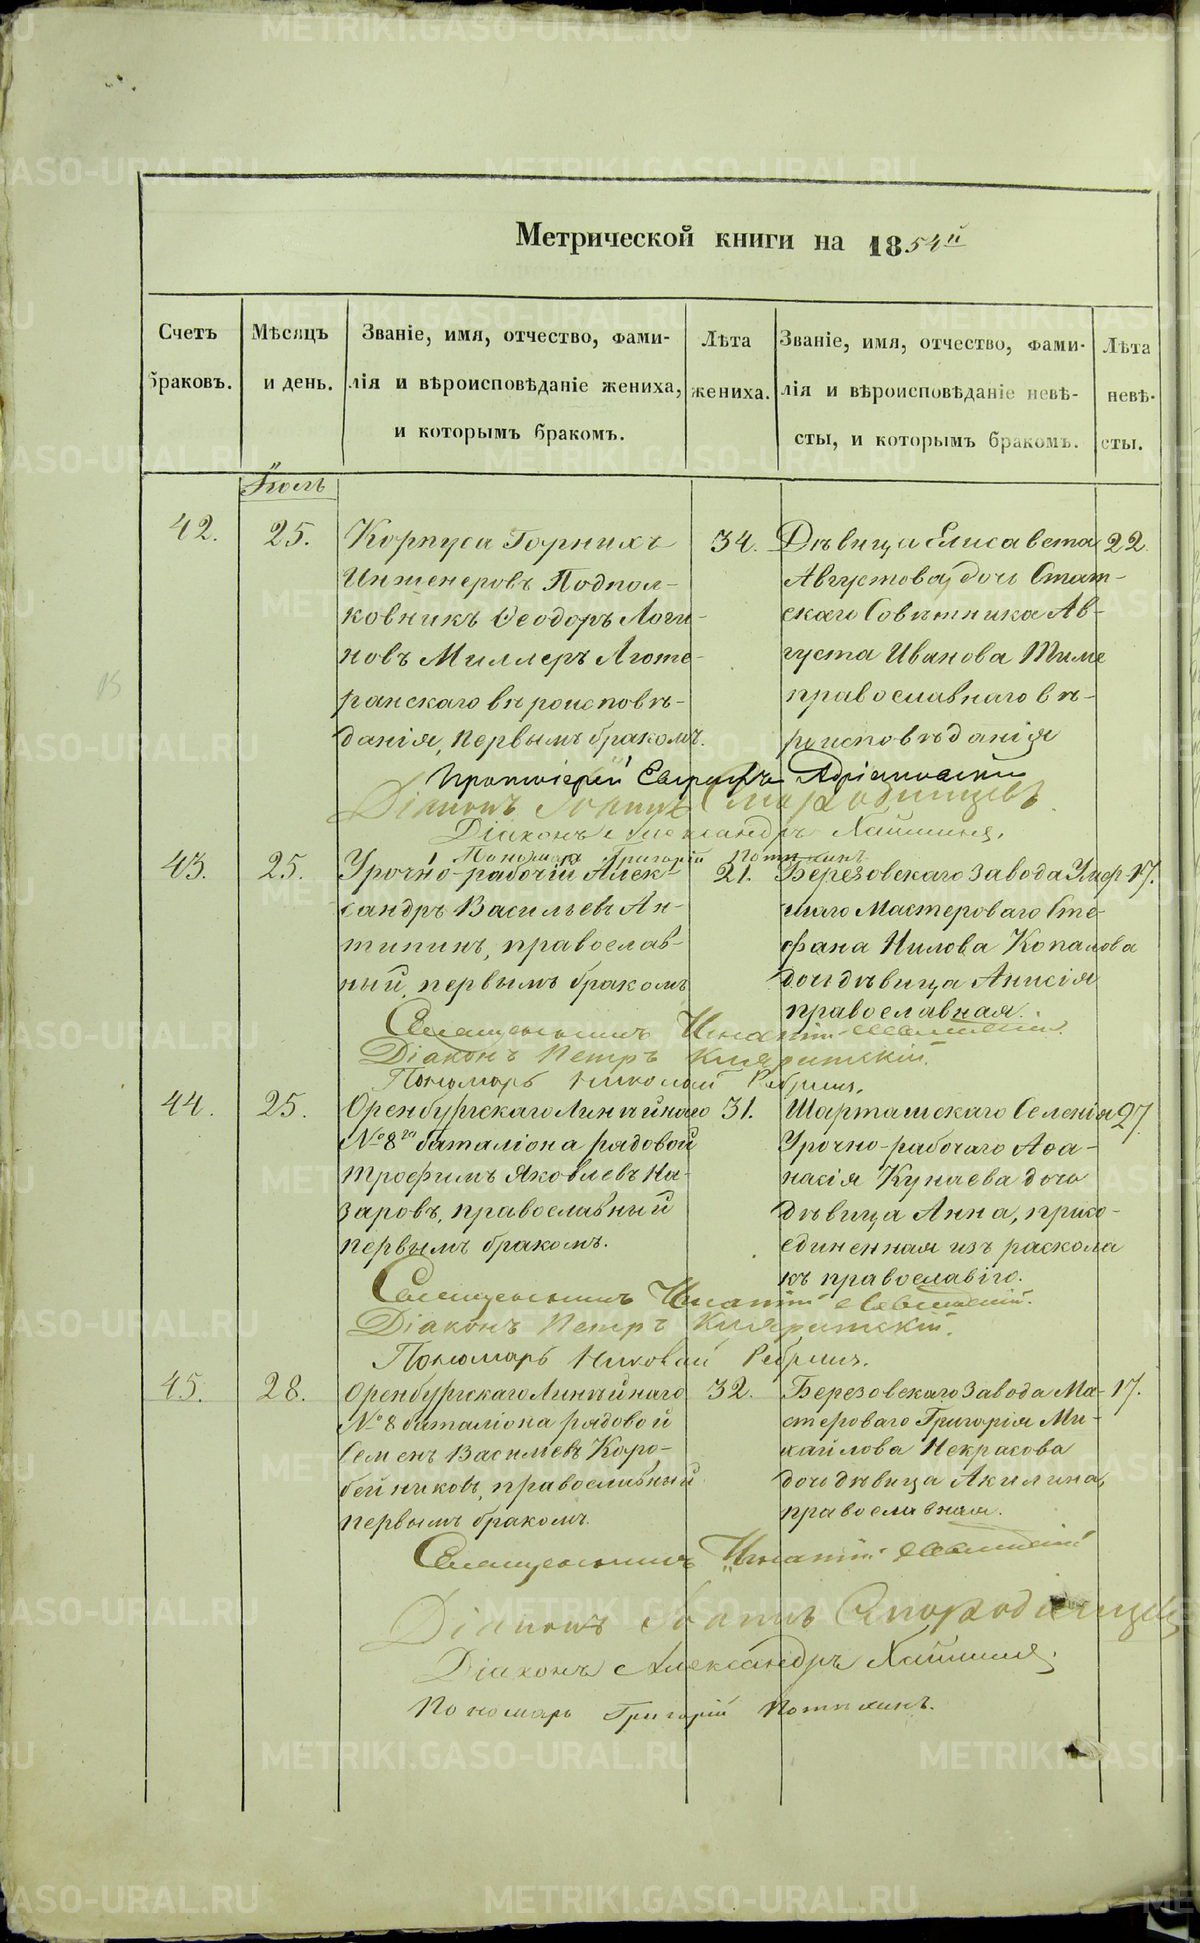 Метрической книги на 1854й
Счетъ браковъ.
Мѣсяцъ и день.
Званіе, имя, отчество, фами-
лія и вѣроисповѣданіе жениха,
и которымъ бракомъ.
Лѣта жениха.
Званіе, имя, отчество, фами-
лія и вѣроисповѣданіе невѣ-
сты, и которымъ бракомъ.
Лѣта невѣ-
сты.
Іюль
42.
25.
Корпуса Горныхъ
Инженеровъ Подпол-
ковникъ Ѳеодоръ Логи-
новъ Миллеръ Люте-
ранскаго вѣроисповѣ-
данія, первымъ бракомъ.
34.
Дѣвица Елисавета
Августова, дочь Стат-
скаго Совѣтника Ав-
густа Иванова Тиме
православнаго вѣ-
роисповѣданія
22.
Протоіерей
Діаконъ Іоаннъ Смородинцевъ
Діаконъ Александръ
Пономарь Григорій
43.
25.
Урочно-рабочій Алек-
сандръ Васильевъ Ан-
типинъ, православ-
ный, первымъ бракомъ
21.
Березовскаго завода Умер-
шаго Мастероваго Сте-
фана Нилова Копалова
дочь дѣвица Анисія
православная.
17.
Священникъ Игнатій
Діаконъ Петръ
Пономарь Николай
44.
25.
Оренбургскаго Линѣйнаго
№ 8го баталіона рядовой
Трофимъ Яковлевъ На-
заровъ, православный
первымъ бракомъ.
31.
Шарташскаго Селенія
Урочно-рабочаго Аѳа-
насія Кунаева дочь
дѣвица Анна, присо-
единенная изъ раскола
къ православію.
27.
Священникъ Игнатій
Діаконъ Петръ
Пономарь Николай
45.
28.
Оренбургскаго Линѣйнаго
№ 8 баталіона рядовой
Семенъ Васильевъ Коро-
бейниковъ, православный
первымъ бракомъ.
32.
Березовскаго завода Ма-
стероваго Григорія Ми-
хайлова Некрасова
дочь дѣвица Акилина,
православная.
17.
Священникъ Игнатій
Діаконъ Іоаннъ Смородинцевъ
Діаконъ Александръ
Пономарь Григорій
METRIKI.GASO-URAL.RU